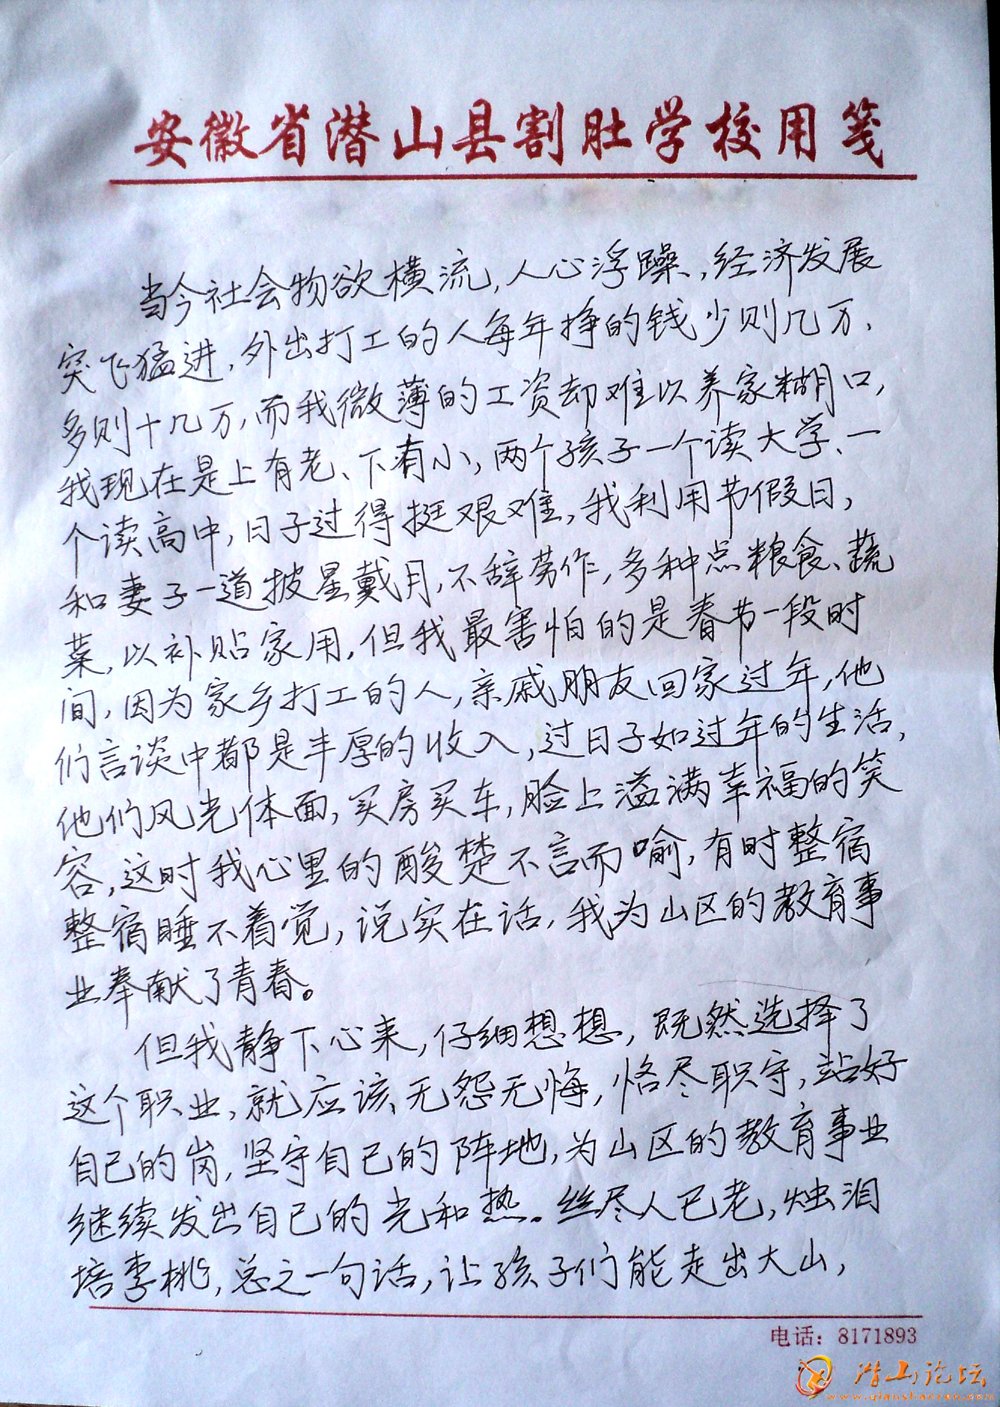 安徽省潜山县割肚学校用笺
当今社会物欲横流,人心浮躁,经济发展
突飞猛进,外出打工的人每年挣的钱少则几万、
多则十几万,而我微薄的工资却难以养家糊口,
我现在是上有老、下有小,两个孩子一个读大学、一
个读高中,日子过得挺艰难,我利用节假日,
和妻子一道披星戴月,不辞劳作,多种点粮食、蔬
菜,以补贴家用,但我最害怕的是春节一段时
间,因为家乡打工的人,亲戚朋友回家过年,他
们言谈中都是丰厚的收入,过日子如过年的生活,
他们风光体面,买房买车,脸上溢满幸福的笑
容,这时我心里的酸楚不言而喻,有时整宿
整宿睡不着觉,说实在话,我为山区的教育事
业奉献了青春。
但我静下心来,仔细想想,既然选择了
这个职业,就应该无怨无悔,恪尽职守,站好
自己的岗,坚守自己的阵地,为山区的教育事业
继续发出自己的光和热。丝尽人已老,烛泪
培李桃,总之一句话,让孩子们能走出大山,
电话:8171893
潜山论坛